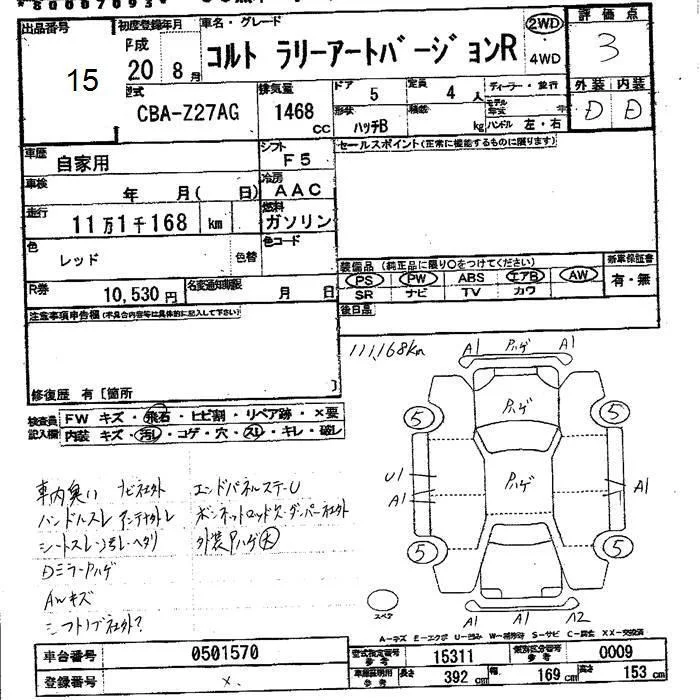 *80007093*
出品番号
15
初度登録年月
平成
20 8月
車名・グレード
コルト ラリーアートバージョンR
2WD
4WD
評価点
3
型式
CBA-Z27AG
排気量
1468
cc
ドア
5
定員
4 人
ディーラー・並行
外装 内装
D D
形状
ハッチB
積載
kg
モデル
年式
年
ハンドル 左・右
車歴
自家用
シフト
F5
セールスポイント(正常に機能するものに限ります)
車検
年 月( 日)
冷房
AAC
走行
11万1千168 km
燃料
ガソリン
色
レッド
色替
色コード
R券
10,530円
名変通知期限
月 日
装備品 (純正品に限り○をつけてください)
新車保証書
PS PW ABS エアB AW
有・無
SR ナビ TV カワ
後日品
注意事項申告欄(不具合内容等は具体的に記入して下さい)
修復歴 有 [箇所 ]
検査員
記入欄
FW キズ・飛石・ヒビ割・リペア跡・×要
内装 キズ・汚レ・コゲ・穴・スレ・キレ・破レ
111,168km
A1 Pハゲ A1
Pハゲ
5 5
U1
A1
Pハゲ
A1
5 5
A1 A1 A2
スペア
車内臭い ナビ社外 エンドパネルステーU
ハンドルスレ アンテナ外レ ボンネットロッドス・ダンパー社外
シートスレ・汚レ・ヘタリ 外装Pハゲ大
Dミラーハゲ
AWキズ
シフトノブ社外?
A-キズ E-エクボ U-凹み W-補修跡 S-サビ C-腐食 XX-交換済
車台番号
0501570
型式指定番号
参考
15311
類別区分番号
参考
0009
登録番号
×.
車庫証明用
参考
長さ
392 cm
幅
169 cm
高さ
153 cm